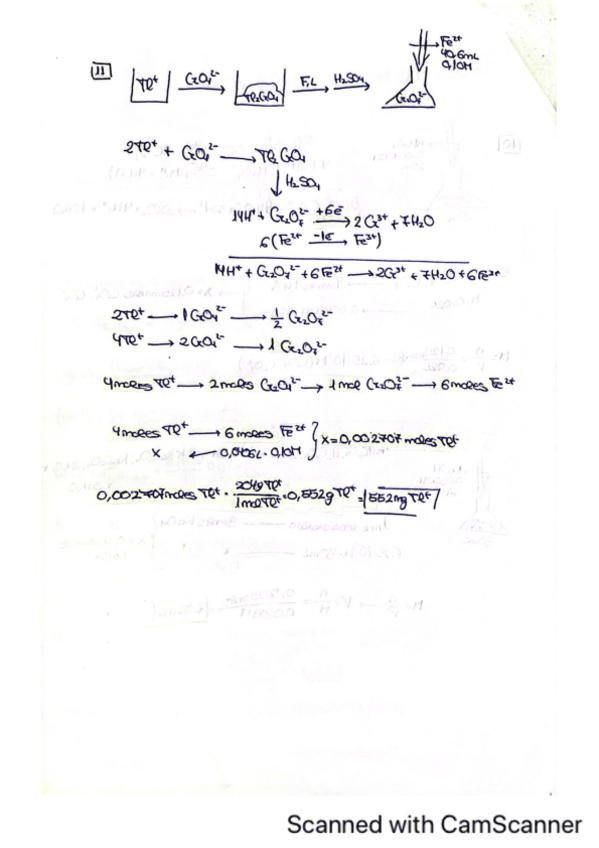 11 Tl⁺ CrO₄²⁻ Tl₂CrO₄ F,L H₂SO₄ Cr₂O₇²⁻ Fe²⁺
40,6mL
0,10M
2Tl⁺ + CrO₄²⁻ → Tl₂CrO₄
↓ H₂SO₄
14H⁺ + Cr₂O₇²⁻ +6e⁻→ 2Cr³⁺ + 7H₂O
6(Fe²⁺ -1e⁻→ Fe³⁺)
14H⁺ + Cr₂O₇²⁻ + 6Fe²⁺ → 2Cr³⁺ + 7H₂O + 6Fe³⁺
2Tl⁺ → 1CrO₄²⁻ → 1/2 Cr₂O₇²⁻
4Tl⁺ → 2CrO₄²⁻ → 1 Cr₂O₇²⁻
4moles Tl⁺ → 2moles CrO₄²⁻ → 1mol Cr₂O₇²⁻ → 6moles Fe²⁺
4moles Tl⁺ → 6 moles Fe²⁺ } x=0,002707 moles Tl⁺
x ← 0,0406L · 0,10M
0,002707moles Tl⁺ · 204g Tl⁺ / 1mol Tl⁺ = 0,552g Tl⁺ = 552mg Tl⁺
Scanned with CamScanner